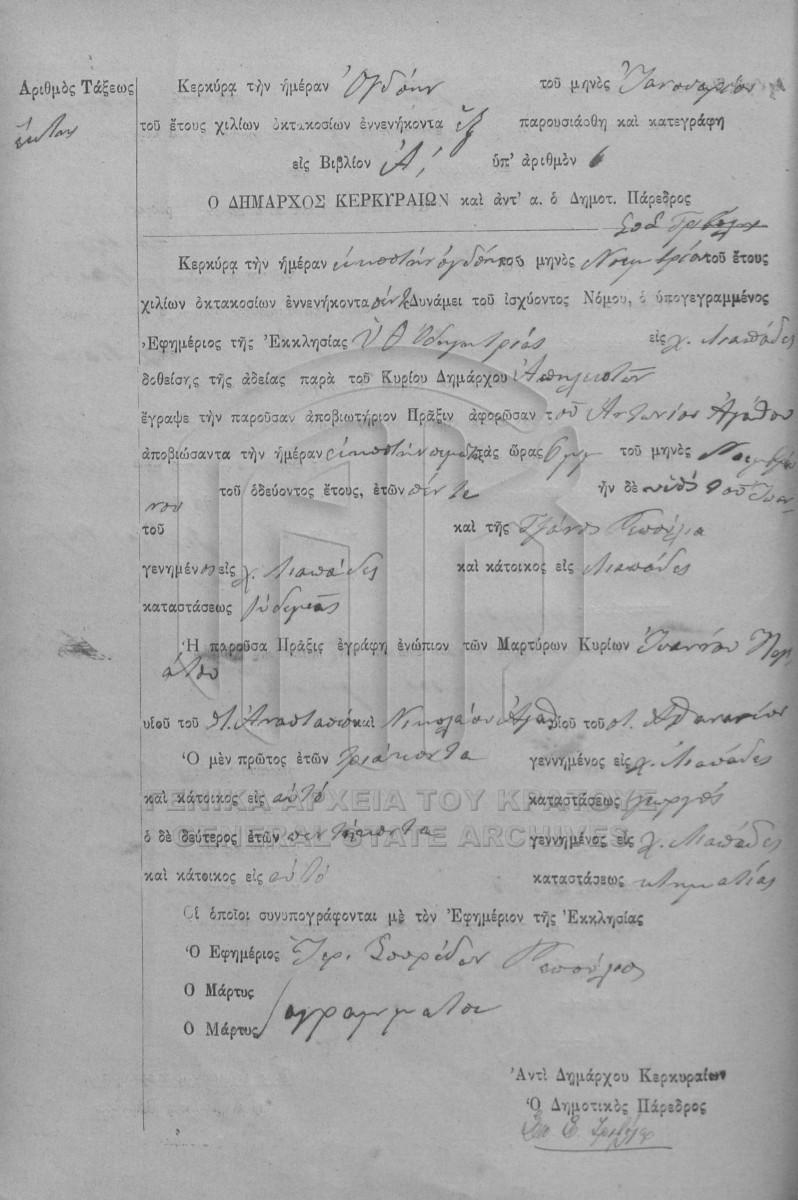 Ἀριθμὸς Τάξεως
ἕκτον
Κερκύρα τὴν ἡμέραν Ὀγδόην τοῦ μηνὸς Ἰανουαρίου
τοῦ ἔτους χιλίων ὀκτακοσίων ἐννενήκοντα ἓξ παρουσιάσθη καὶ κατεγράφη
εἰς Βιβλίον Α' ὑπ' ἀριθμὸν 6
Ὁ ΔΗΜΑΡΧΟΣ ΚΕΡΚΥΡΑΙΩΝ καὶ ἀντ' α. ὁ Δημοτ. Πάρεδρος
Κερκύρᾳ τὴν ἡμέραν εἰκοστὴν ὀγδόην τοῦ μηνὸς Νοεμβρίου τοῦ ἔτους
χιλίων ὀκτακοσίων ἐννενήκοντα πέντε Δυνάμει τοῦ ἰσχύοντος Νόμου, ὁ ὑπογεγραμμένος
Ἐφημέριος τῆς Ἐκκλησίας Ὑ Θ Ὁδηγητρίας εἰς χ. Λιαπάδες
δοθείσης τῆς ἀδείας παρὰ τοῦ Κυρίου Δημάρχου
ἔγραψε τὴν παροῦσαν ἀποβιωτήριον Πρᾶξιν ἀφορῶσαν τοῦ Ἀντωνίου Ἀγάθου
ἀποβιώσαντα τὴν ἡμέραν εἰκοστὴν τὰς ὥρας 6 μμ τοῦ μηνὸς Νοεμβρίου
τοῦ ὁδεύοντος ἔτους, ἐτῶν πέντε ἦν δὲ υἱὸς τοῦ Ἰωάν
νου
τοῦ καὶ τῆς
γενημένος εἰς χ. Λιαπάδες καὶ κάτοικος εἰς Λιαπάδες
καταστάσεως οὐδεμιᾶς
Ἡ παροῦσα Πρᾶξις ἐγράφη ἐνώπιον τῶν Μαρτύρων Κυρίων Ἰωάννου
υἱοῦ τοῦ π. Ἀναστασίου καὶ Νικολάου Ἀγάθ υἱοῦ τοῦ π. Ἀθανασίου
Ὁ μὲν πρῶτος ἐτῶν τριάκοντα γεννημένος εἰς χ. Λιαπάδες
καὶ κάτοικος εἰς αὐτό καταστάσεως γεωργός
ὁ δὲ δεύτερος ἐτῶν πεντήκοντα γεννημένος εἰς χ. Λιαπάδες
καὶ κάτοικος εἰς αὐτό καταστάσεως κτηματίας
Οἱ ὁποῖοι συνυπογράφονται μὲ τὸν Ἐφημέριον τῆς Ἐκκλησίας
Ὁ Ἐφημέριος Ἱερ. Σπυρίδων
Ὁ Μάρτυς
Ὁ Μάρτυς ἀγράμματοι
Ἀντὶ Δημάρχου Κερκυραίων
Ὁ Δημοτικὸς Πάρεδρος
ΓΕΝΙΚΑ ΑΡΧΕΙΑ ΤΟΥ ΚΡΑΤΟΥΣ
GENERAL STATE ARCHIVES